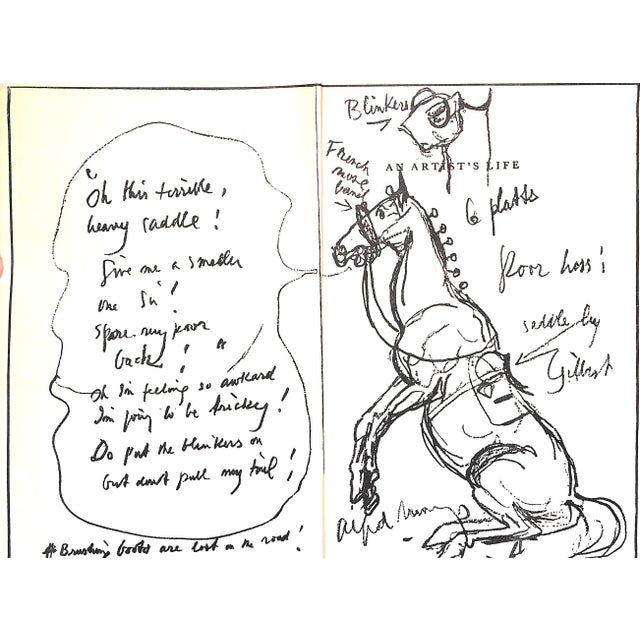 "Oh this terrible,
heavy saddle!
Give me a smaller
one Sir!
Spare my poor
back!
Oh I'm feeling so awkward
I'm going to be tricky!
Do put the blinkers on
but dont pull my tail!
Brushing boots are lost on the road!
Blinkers
French
nose
band
AN ARTIST'S LIFE
6 platts
Poor hoss!
saddle by
Gilbert
Alfred Munnings